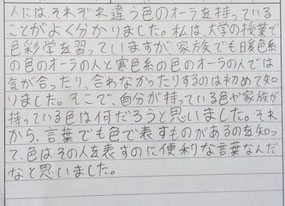 人にはそれぞれ違う色のオーラを持っている
ことがよく分かりました。私は、大学の授業で
色彩学を習っていますが、家族でも暖色系
の色のオーラの人と寒色系の色のオーラの人では
気が合ったり、合わなかったりするのは初めて知
りました。そこで、自分が持っている色や家族が
持っている色は何だろうと思いました。それ
から、言葉でも色で表すものがあるのを知っ
て、色はその人を表すのに便利な言葉なんだ
なと思いました。